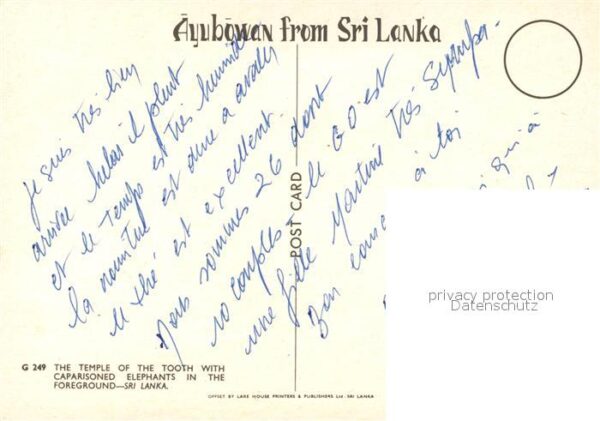 Āyubōwan from Sri Lanka
Je suis très bien
arrivée hélas il pleut
et le temps est très humide
la nourriture est dure à avaler
le thé est excellent.
Nous sommes 26 dont
10 couples - le GO est
une fille Martine très sympa.
Bon à toi
qui à
POST CARD
privacy protection
Datenschutz
G 249 THE TEMPLE OF THE TOOTH WITH
CAPARISONED ELEPHANTS IN THE
FOREGROUND—SRI LANKA.
OFFSET BY LAKE HOUSE PRINTERS & PUBLISHERS Ltd. SRI LANKA